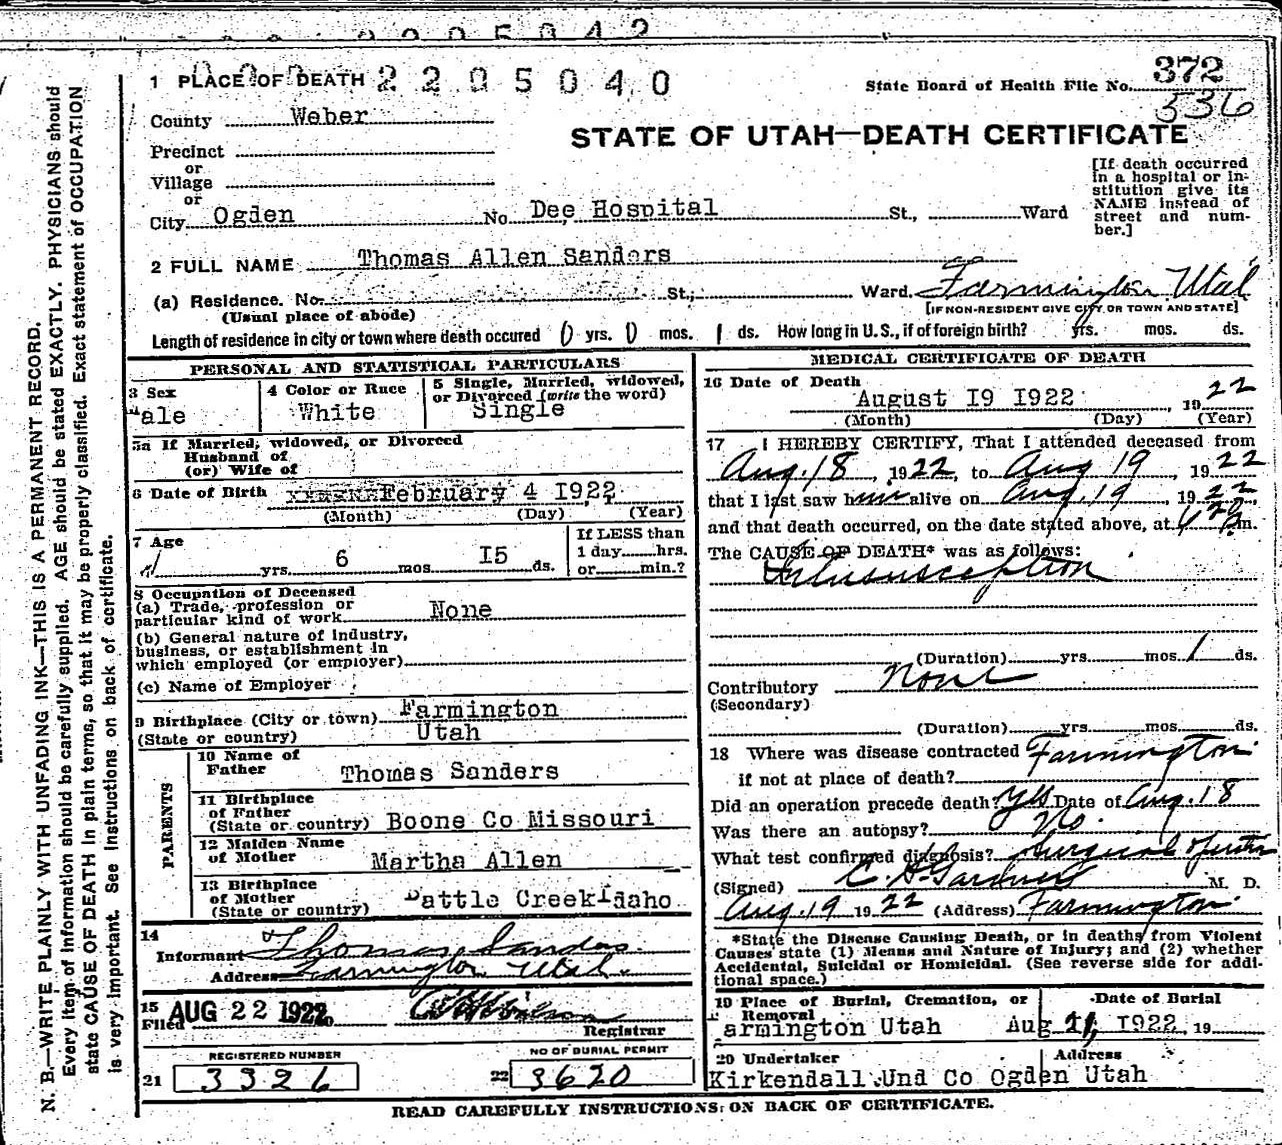 2205042
1 PLACE OF DEATH 2205040
State Board of Health File No. 372
536
County Weber
STATE OF UTAH—DEATH CERTIFICATE
Precinct
or
Village
or
City Ogden No. Dee Hospital St., Ward
[If death occurred in a hospital or institution give its NAME instead of street and number.]
2 FULL NAME Thomas Allen Sanders
(a) Residence. No. St., Ward. Farmington Utah
(Usual place of abode) [IF NON-RESIDENT GIVE CITY OR TOWN AND STATE]
Length of residence in city or town where death occured 0 yrs. 0 mos. 1 ds. How long in U.S., if of foreign birth? yrs. mos. ds.
PERSONAL AND STATISTICAL PARTICULARS
3 Sex
ale
4 Color or Race
White
5 Single, Married, widowed, or Divorced (write the word)
Single
5a If Married, widowed, or Divorced
Husband of
(or) Wife of
6 Date of Birth February 4 I922
(Month) (Day) (Year)
7 Age
yrs. 6 mos. I5 ds.
If LESS than
1 day hrs.
or min.?
8 Occupation of Deceased
(a) Trade, profession or
particular kind of work None
(b) General nature of industry,
business, or establishment in
which employed (or employer)
(c) Name of Employer
9 Birthplace (City or town) Farmington
(State or country) Utah
PARENTS
10 Name of Father Thomas Sanders
11 Birthplace of Father
(State or country) Boone Co Missouri
12 Maiden Name of Mother Martha Allen
13 Birthplace of Mother
(State or country) Battle Creek Idaho
14
Informant Thomas Sanders
Address Farmington Utah.
15
Filed AUG 22 1922
Registrar
REGISTERED NUMBER
21 3326
NO OF BURIAL PERMIT
22 3620
MEDICAL CERTIFICATE OF DEATH
16 Date of Death
August I9 I922, 1922
(Month) (Day) (Year)
17 I HEREBY CERTIFY, That I attended deceased from
Aug. 18, 1922, to Aug 19, 1922
that I last saw him alive on Aug. 19, 1922,
and that death occurred, on the date stated above, at m.
The CAUSE OF DEATH* was as follows:
Intususception
(Duration) yrs. mos. 1 ds.
Contributory None
(Secondary)
(Duration) yrs. mos. ds.
18 Where was disease contracted Farmington
if not at place of death?
Did an operation precede death? Yes Date of Aug. 18
Was there an autopsy? No.
What test confirmed diagnosis? Surgical Operation
(Signed) C. A. Gardner M. D.
Aug. 19 1922 (Address) Farmington
*State the Disease Causing Death, or in deaths from Violent
Causes state (1) Means and Nature of Injury; and (2) whether
Accidental, Suicidal or Homicidal. (See reverse side for additional space.)
19 Place of Burial, Cremation, or Removal
Farmington Utah
Date of Burial
Aug 21, I922, 19
20 Undertaker
Kirkendall Und Co
Address
Ogden Utah
READ CAREFULLY INSTRUCTIONS ON BACK OF CERTIFICATE.
N. B.—WRITE PLAINLY WITH UNFADING INK—THIS IS A PERMANENT RECORD.
Every item of information should be carefully supplied. AGE should be stated EXACTLY. PHYSICIANS should
state CAUSE OF DEATH in plain terms, so that it may be properly classified. Exact statement of OCCUPATION
is very important. See instructions on back of certificate.